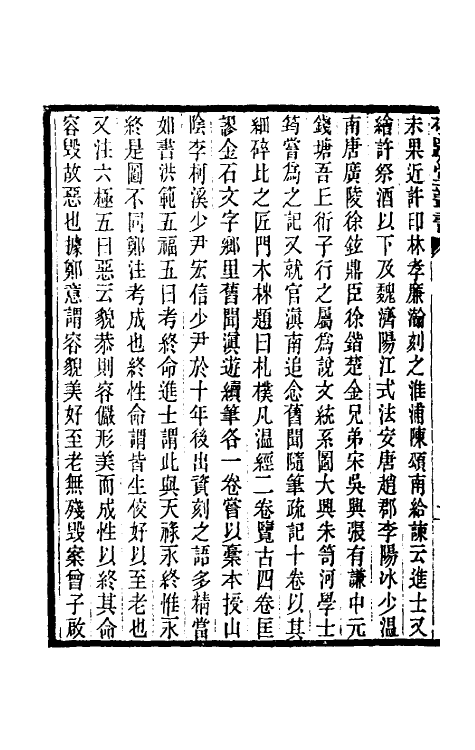 未果近許印林孝廉瀚刻之淮浦陳頌南給諫云進士又
繪許祭酒以下及魏濟陽江式法安唐趙郡李陽冰少溫
南唐廣陵徐鉉鼎臣徐鍇楚金兄弟宋吳興張有謙中元
錢塘吾丘衍子行之屬為說文統系圖大興朱笥河學士
筠嘗為之記又就官滇南追念舊聞隨筆疏記十卷以其
細碎比之匠門木柹題曰札樸凡溫經二卷覽古四卷匡
謬金石文字鄉里舊聞滇遊續筆各一卷嘗以稾本授山
陰李柯溪少尹宏信少尹於十年後出資刻之語多精當
如書洪範五福五曰考終命進士謂此與天祿永終惟永
終是圖不同鄭注考成也終性命謂皆生佼好以至老也
又注六極五曰惡云貌恭則容儼形美而成性以終其命
容毀故惡也據鄭意謂容貌美好至老無殘毀案曾子啟